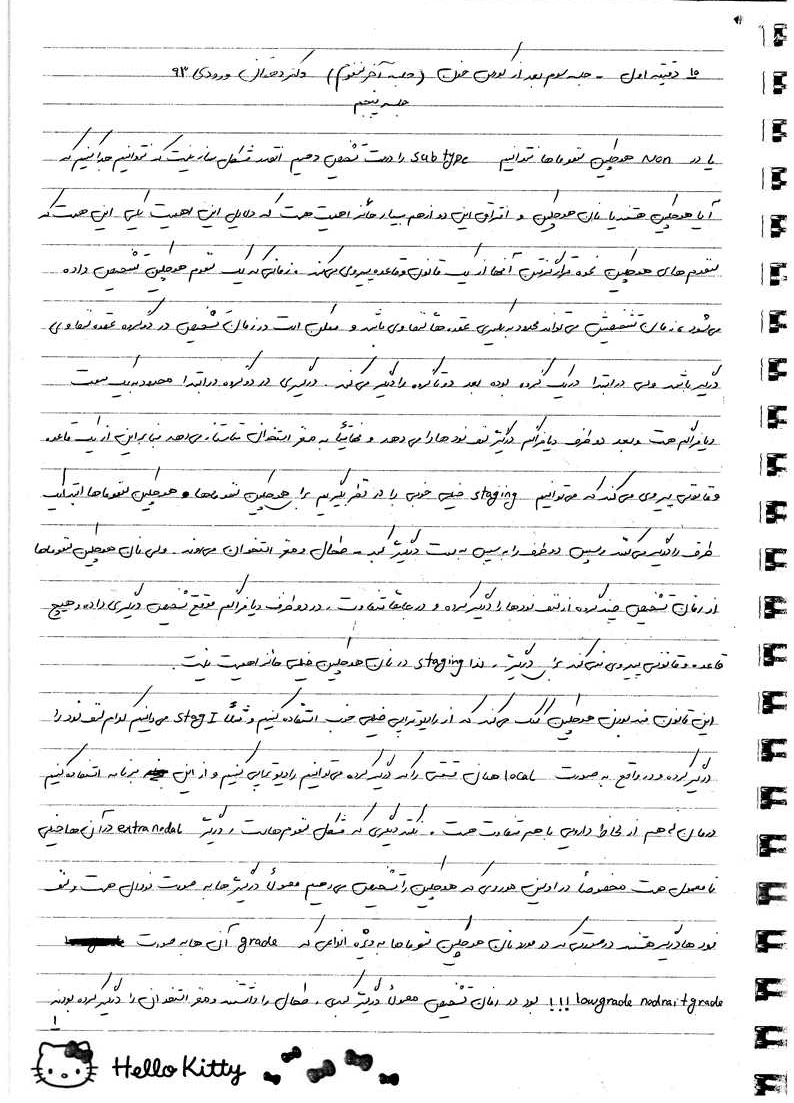 ۱۵ دقیقه اول - جلسه سوم بعد از کوئیز خون (جلسه آخر لنفوم) دکتر دهقانی ورودی ۹۳
جلسه پنجم
یا در Non هوچکین لنفوماها نتوانیم subtype را درست تشخیص دهیم آنقدر مشکل ساز نیست که نتوانیم جدا کنیم که
آیا هوچکین هستند یا نان هوچکین و افتراق این دو از هم بسیار حائز اهمیت هست که دلایل این اهمیت یکی این هست که
لنفوم های هوچکین نحوه قرار گرفتن آنها از یک قانون و قاعده پیروی می‌کند. زمانی که یک لنفوم هوچکین تشخیص داده
می‌شود، زمان تشخیصش می‌تواند محدود به یکسری عقده های متفاوتی باشد و ممکن است در زمان تشخیص در دو گروه عقده متفاوتی
درگیر باشد ولی در ابتدا در یک گروه بوده بعد دو تا گروه را درگیر می‌کند. درگیری در دو گروه در ابتدا محدود به یک سمت
دیافراگم هست و بعد دو طرف دیافراگم درگیری لنف نودها را می دهد و نهایتاً به مغز استخوان متاستاز می‌دهد بنابراین از یک قاعده
و قانونی پیروی می‌کند که می‌توانیم staging خیلی خوبی را در نظر بگیریم برای هوچکین لنفوماها. هوچکین لنفوماها ابتدا یک
طرف را درگیر می‌کنند و سپس دو طرف را سپس به سمت درگیری کبد - طحال و مغز استخوان می‌روند. ولی نان هوچکین لنفوماها
از زمان تشخیص چند گروه از لنف نودها را درگیر کرده و در جاهای متفاوت، در دو طرف دیافراگم موقع تشخیص درگیری داده و هیچ
قاعده و قانونی پیروی نمی‌کند برای درگیری. لذا staging در نان هوچکین خیلی حائز اهمیت نیست.
این قانون مند بودن هوچکین کمک می‌کند که از رادیوتراپی خیلی خوب استفاده کنیم و مثلاً stag I می‌دانیم کدام لنف نود را
درگیر کرده و در واقع به صورت local همان قسمتی را که درگیر کرده می‌توانیم رادیوتراپی کنیم و از این برنامه استفاده کنیم
درمان هم از لحاظ دارویی با هم متفاوت هست. نکته دیگری که مشکل لنفوم هاست، درگیری extra nodal در آن ها خیلی
نامعمول هست مخصوصاً در اولین موردی که هوچکین را تشخیص می‌دهیم معمولاً درگیری ها به صورت نودال هست و لنف
نودها درگیر هستند در صورتی که در مورد نان هوچکین لنفوماها به ویژه انواعی که grade آن ها به صورت
lowgrade !!! بود در زمان تشخیص معمولاً درگیری کبدی، طحال را داشتند و مغز استخوان را درگیر کرده بودند
۱
Hello Kitty